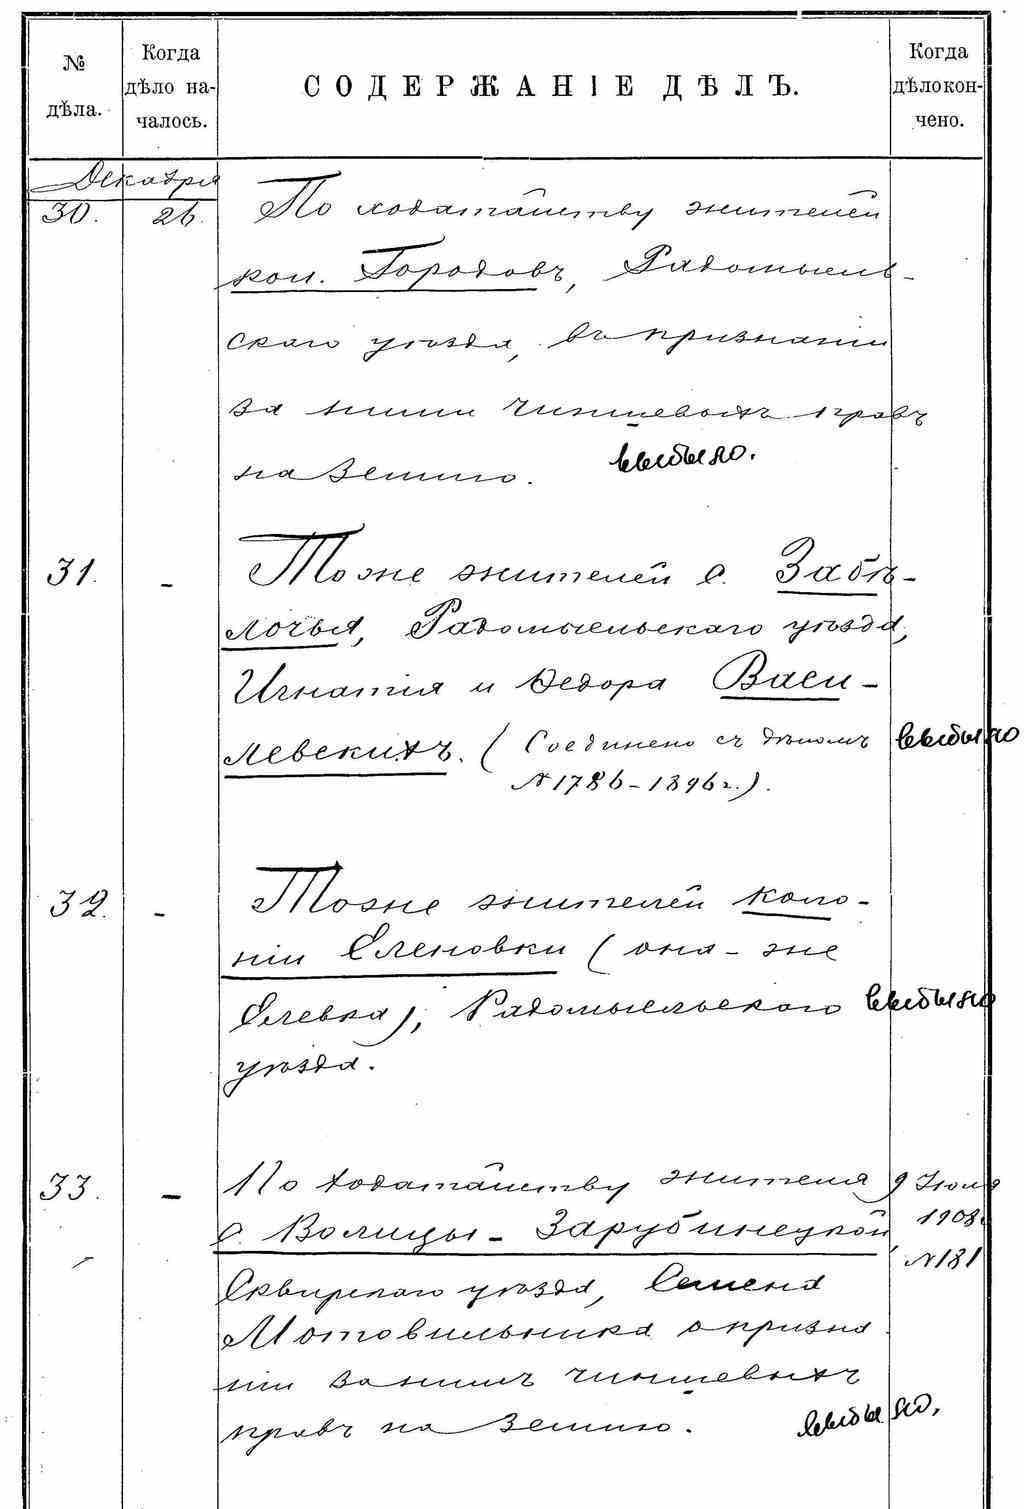 № дѣла.
Когда дѣло началось.
СОДЕРЖАНІЕ ДѢЛЪ.
Когда дѣло кончено.
Декабря
30. 26. По ходатайству жителей
кол. Городовъ, Радомысль-
скаго уѣзда, въ признаніи
за ними чиншевыхъ правъ
на землю. выбыло.
31. - Тоже жителей с. Забѣ-
лочья, Радомысльскаго уѣзда,
Игнатія и Ѳедора Васи-
левскихъ. (Соединено съ дѣломъ выбыло
№1786-1896г.).
32. - Тоже жителей коло-
ніи Еленовки (она-же
Елевка), Радомысльскаго выбыло
уѣзда.
33. - По ходатайству жителя 9 Іюля
с. Волицы-Зарубинецкой, 1908г.
№181
Сквирскаго уѣзда, Семена
Мотовильника о призна
ніи за нимъ чиншевыхъ
правъ на землю. выбыло.